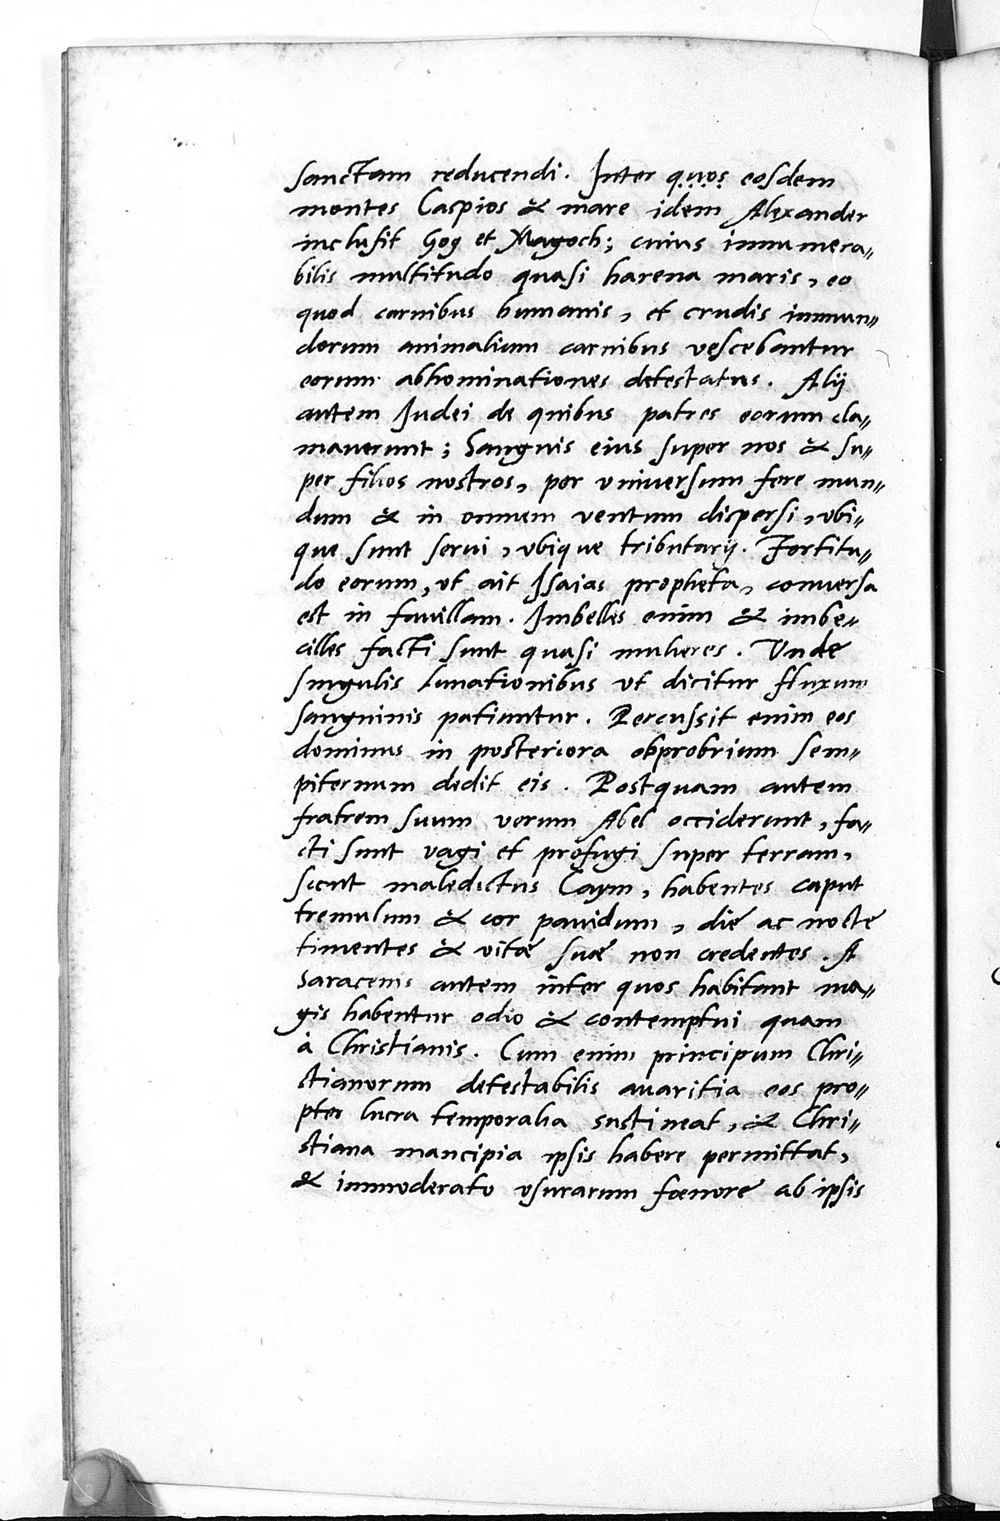 sanctam reducendi. Inter quos eosdem
montes Caspios & mare idem Alexander
inclusit Gog et Magoch; cuius innumera„
bilis multitudo quasi harena maris, eo
quod carnibus humanis, et crudis immun„
dorum animalium carnibus vescebantur
eorum abhominationes detestatus. Alij
autem Iudei de quibus patres eorum cla„
maverunt; Sanguis eius super nos & su„
per filios nostros, per vniuersum fere mun„
dum & in omnem ventum dispersi, vbi„
que sunt serui, vbique tributarij. Fortitu„
do eorum, ut ait Isaias propheta, conversa
est in favillam. Imbelles enim & imbe„
cilles facti sunt quasi mulieres. Unde
singulis lunationibus ut dicitur fluxum
sanguinis patiuntur. Percussit enim eos
dominus in posteriora obprobrium sem„
piternum dedit eis. Postquam autem
fratrem suum verum Abel occiderunt, fa„
cti sunt vagi et profugi super terram,
sicut maledictus Caym, habentes caput
tremulum & cor pavidum, die ac nocte
timentes & vitæ suæ non credentes. A
Saracenis autem inter quos habitant ma„
gis habentur odio & contemptui quam
à Christianis. Cum enim principum Chri„
stianorum detestabilis avaritia eos pro„
pter lucra temporalia sustineat, & Chri„
stiana mancipia ipsis habere permittat,
& immoderato vsurarum fœnore ab ipsis